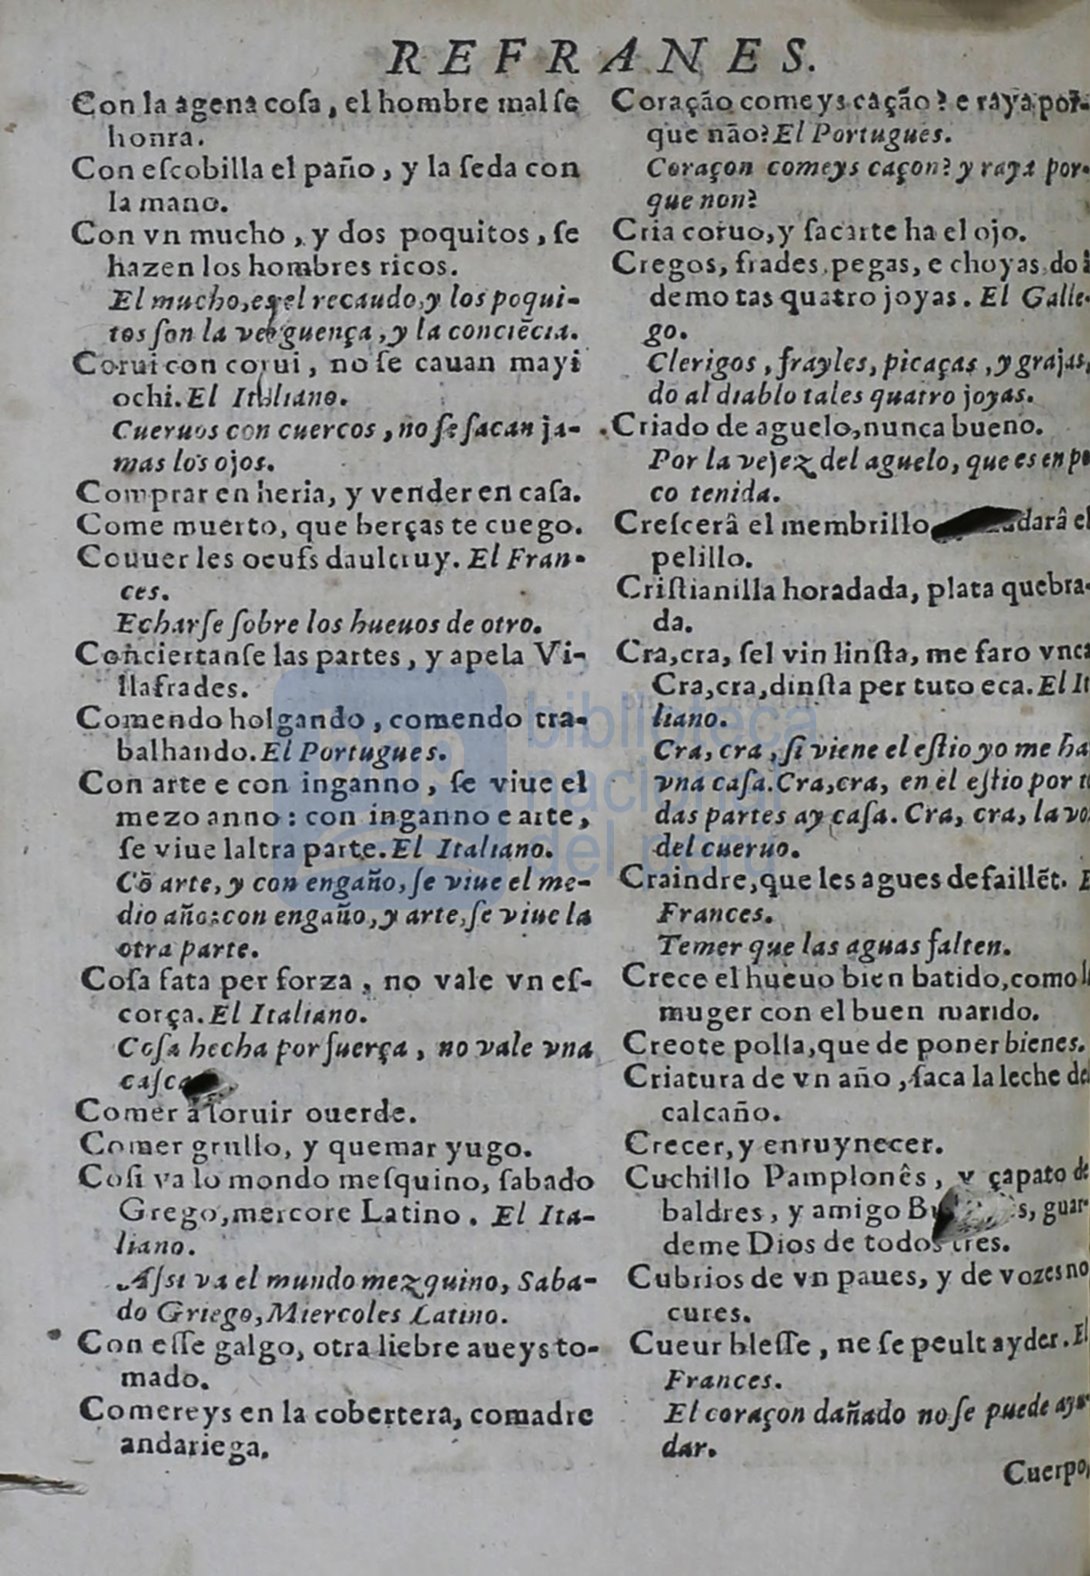 REFRANES.
Con la agena cosa, el hombre mal ſe
honra.
Con eſcobilla el paño, y la ſeda con
la mano.
Con vn mucho, y dos poquitos, ſe
hazen los hombres ricos.
El mucho, es el recaudo, y los poqui-
tos ſon la verguença, y la conciẽcia.
Corui con corui, no ſe cauan mayi
ochi. El Italiano.
Cueruos con cuercos, no ſe ſacan ja-
mas los ojos.
Comprar en heria, y vender en caſa.
Come muerto, que berças te cuego.
Couuer les oeufs daultruy. El Fran-
ces.
Echarſe ſobre los hueuos de otro.
Conciertanſe las partes, y apela Vi-
llafrades.
Comendo holgando, comendo tra-
balhando. El Portugues.
Con arte e con inganno, ſe viue el
mezo anno: con inganno e arte,
ſe viue laltra parte. El Italiano.
Cõ arte, y con engaño, ſe viue el me-
dio año: con engaño, y arte, ſe viue la
otra parte.
Coſa fata per forza, no vale vn eſ-
corça. El Italiano.
Coſa hecha por fuerça, no vale vna

Comer a ſoruir ouerde.
Comer grullo, y quemar yugo.
Coſi va lo mondo meſquino, ſabado
Grego, mercore Latino. El Ita-
liano.
Aſsi va el mundo mezquino, Saba-
do Griego, Miercoles Latino.
Con eſſe galgo, otra liebre aueys to-
mado.
Comereys en la cobertera, comadre
andariega.
Coração comeys cação? e raya por-
que não? El Portugues.
Coraçon comeys caçon? y raya por-
que non?
Cria coruo, y ſacarte ha el ojo.
Cregos, frades, pegas, e choyas, do â
demo tas quatro joyas. El Galle-
go.
Clerigos, frayles, picaças, y grajas,
do al diablo tales quatro joyas.
Criado de aguelo, nunca bueno.
Por la vejez del aguelo, que es en po
co tenida.
Creſcerâ el membrillo el
pelillo.
Criſtianilla horadada, plata quebra-
da.
Cra, cra, ſel vin linſta, me faro vnca
Cra, cra, dinſta per tuto eca. El It
liano.
Cra, cra, ſi viene el eſtio yo me ha
vna caſa. Cra, cra, en el eſtio por t
das partes ay caſa. Cra, cra, la vo
del cueruo.
Craindre, que les agues defaillẽt. E
Frances.
Temer que las aguas falten.
Crece el hueuo bien batido, como l
muger con el buen marido.
Creote polla, que de poner bienes.
Criatura de vn año, ſaca la leche del
calcaño.
Crecer, y enruynecer.
Cuchillo Pamplonês, y çapato de
baldres, y amigo guar-
deme Dios de todos tres.
Cubrios de vn paues, y de vozes no
cures.
Cueur bleſſe, ne ſe peult ayder. El
Frances.
El coraçon dañado no ſe puede ayu-
dar.
Cuerpo,
biblioteca
nacional
del